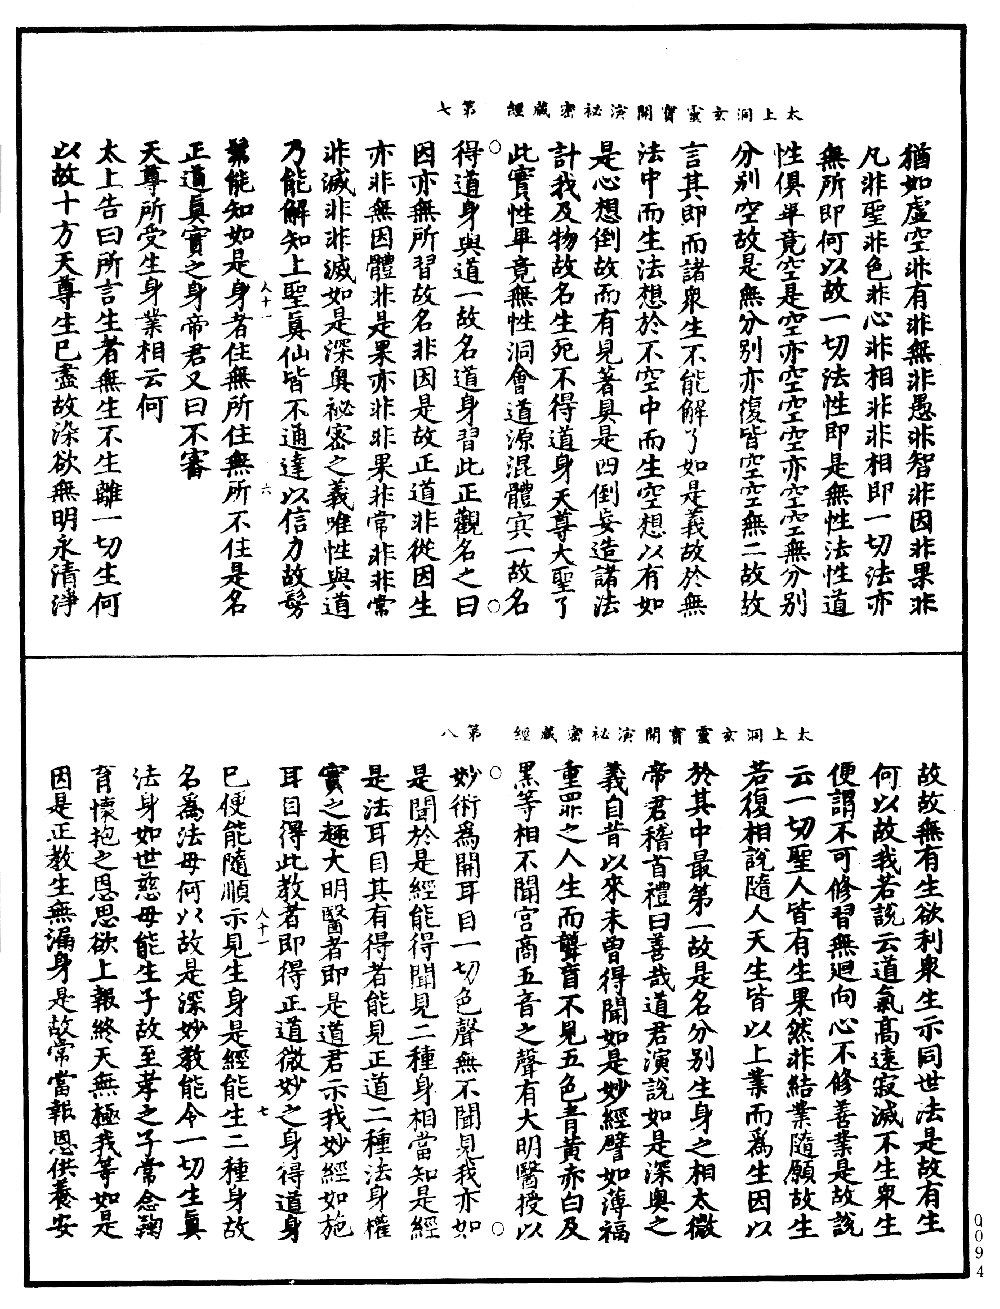 太上洞玄靈寶開演祕密藏經　第七
猶如虛空非有非無非愚非智非因非果非
凡非聖非色非心非相非非相即一切法亦
無所即何以故一切法性即是無性法性道
性俱畢竟空是空亦空空空亦空空無分別
分別空故是無分別亦復皆空空無二故故
言其即而諸衆生不能解了如是義故於無
法中而生法想於不空中而生空想以有如
是心想倒故而有見著具是四倒妄造諸法
計我及物故名生死不得道身天尊大聖了
此實性畢竟無性洞會道源混體㝠一故名
得道身與道一故名道身習此正觀名之曰
因亦無所習故名非因是故正道非從因生
亦非無因體非是果亦非非果非常非非常
非滅非非滅如是深奥祕密之義唯性與道
乃能解知上聖眞仙皆不通達以信力故髣
人十一　六
髴能知如是身者住無所住無所不住是名
正道眞實之身帝君又曰不審
天尊所受生身業相云何
太上告曰所言生者無生不生離一切生何
以故十方天尊生巳盡故染欲無明永清淨
太上洞玄靈寶開演祕密藏經　第八
故故無有生欲利衆生示同世法是故有生
何以故我若說云道氣高遠寂滅不生衆生
便謂不可修習無迴向心不修善業是故說
云一切聖人皆有生果然非結業隨願故生
若復相說隨人天生皆以上業而爲生因以
於其中最第一故是名分別生身之相太微
帝君稽首禮曰善哉道君演說如是深奥之
義自昔以來未曾得聞如是妙經譬如薄福
重罪之人生而聾盲不見五色青黃赤白及
黑等相不聞宮商五音之聲有大明醫授以
妙術爲開耳目一切色聲無不聞見我亦如
是聞於是經能得聞見二種身相當知是經
是法耳目其有得者能見正道二種法身權
實之趣大明醫者即是道君示我妙經如施
耳目得此教者即得正道微妙之身得道身
人十一　七
巳便能隨順示見生身是經能生二種身故
名爲法母何以故是深妙教能令一切生眞
法身如世慈母能生子故至孝之子常念鞠
育懷抱之恩思欲上報終天無極我等如是
因是正教生無漏身是故常當報恩供養安
Q094